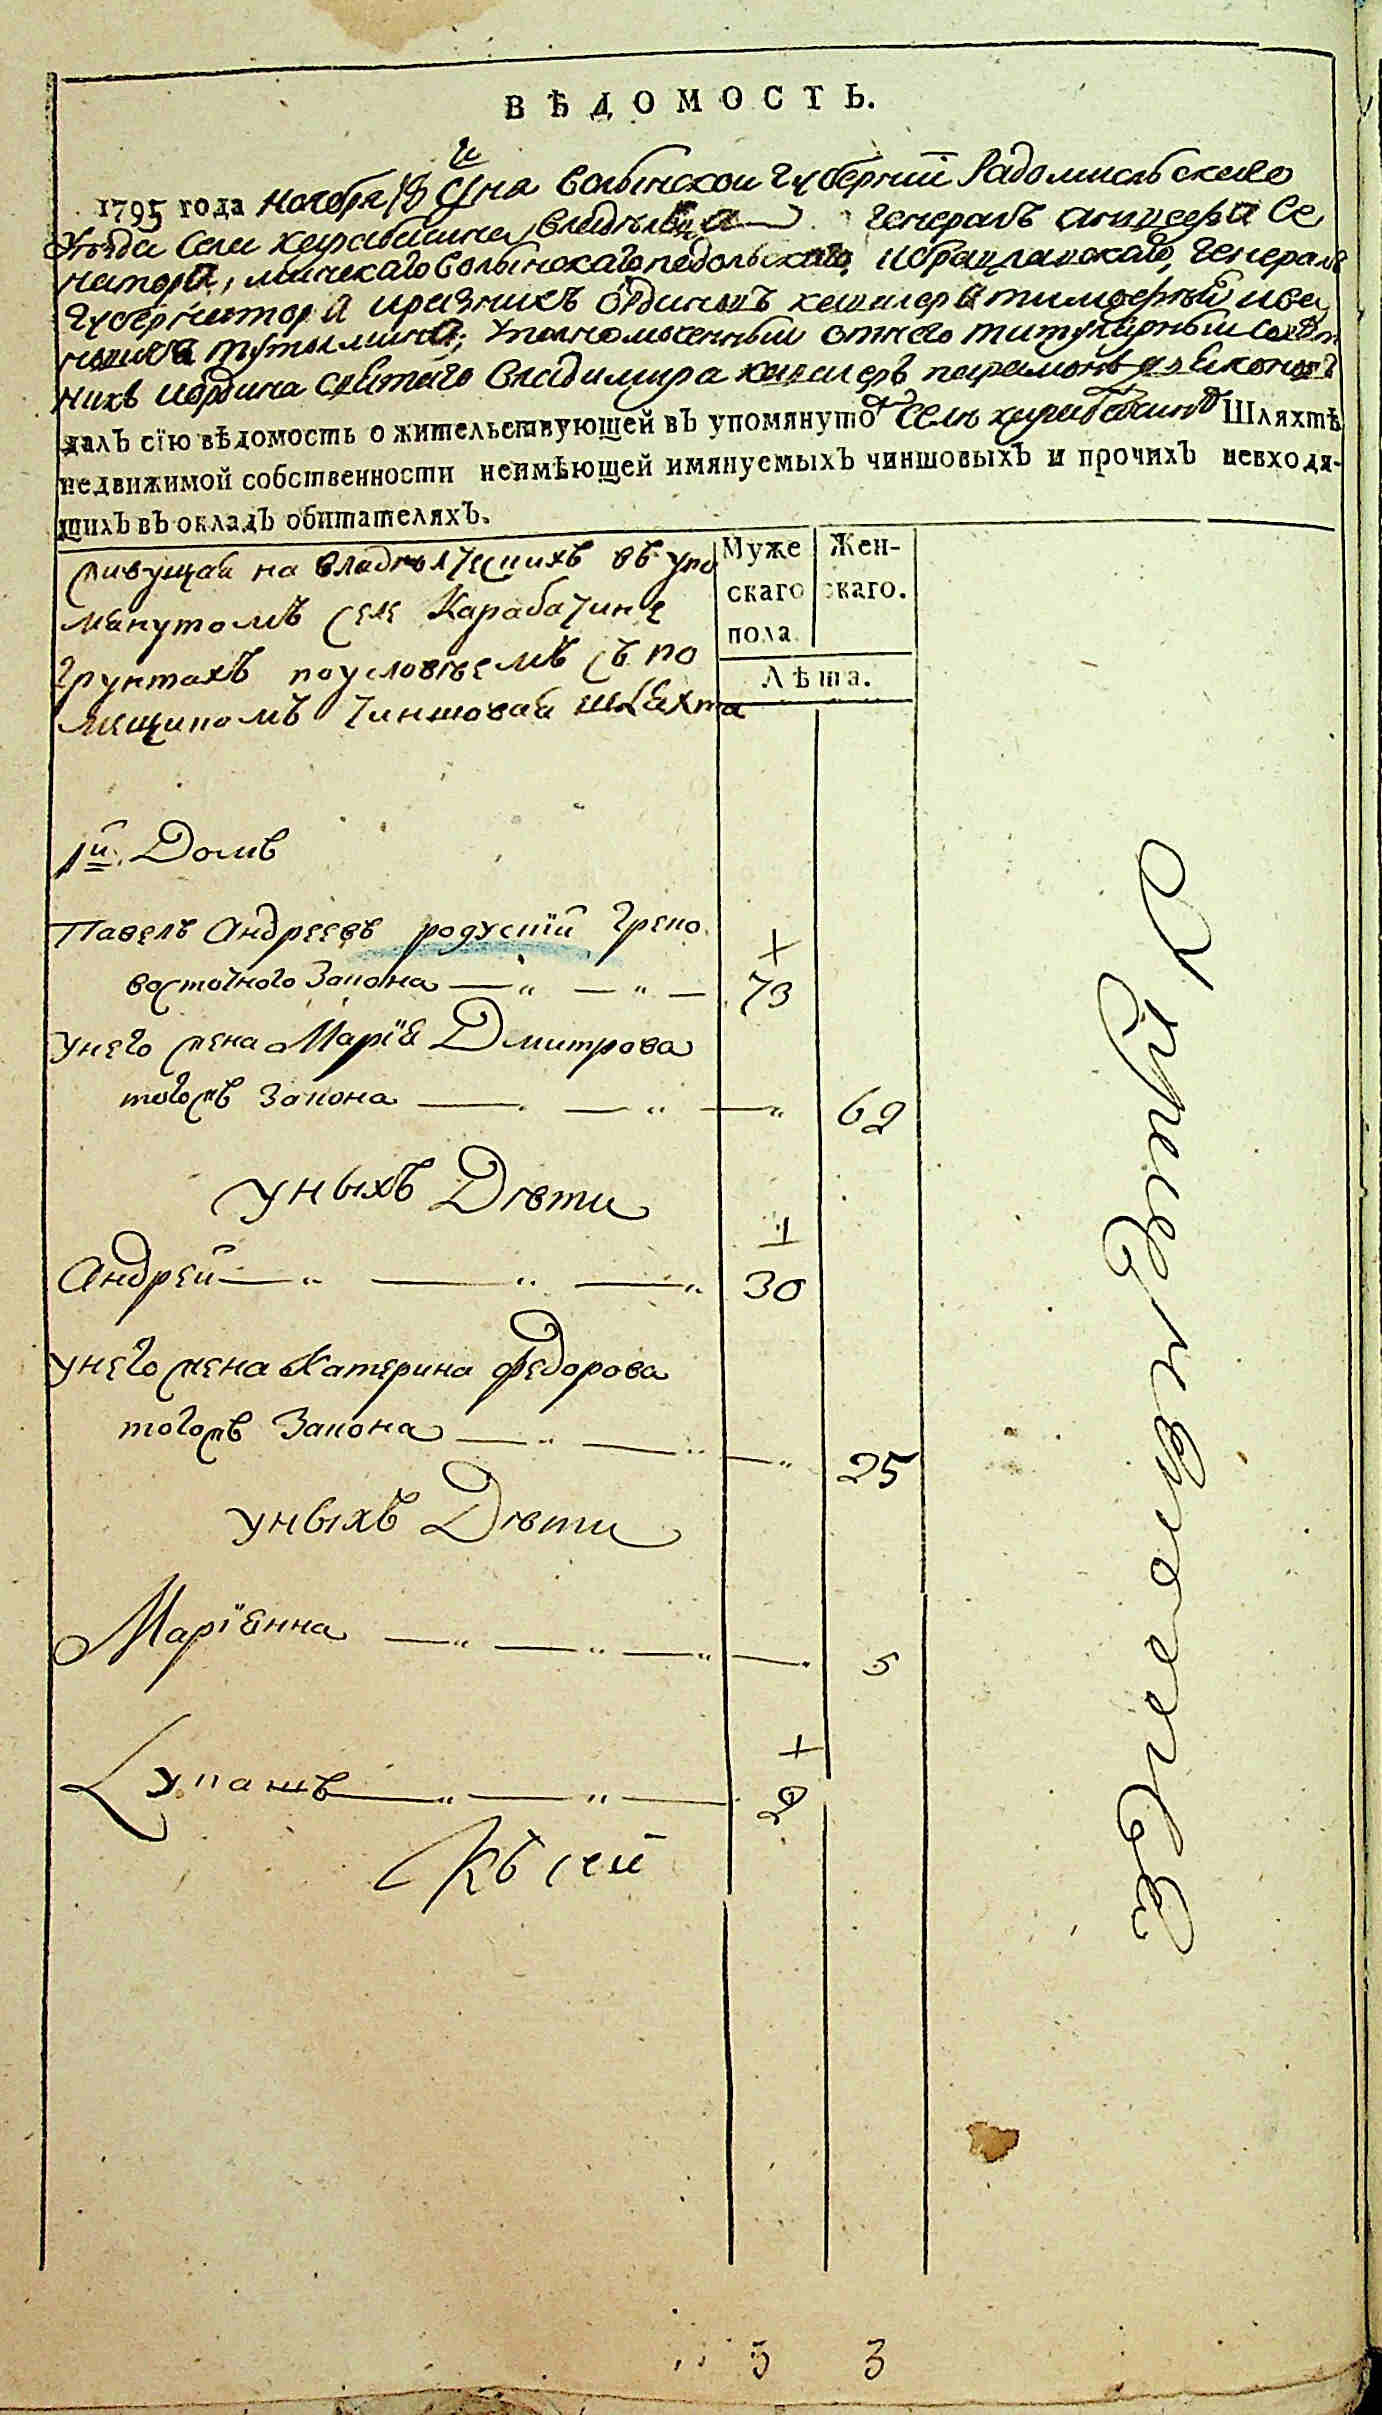 ВѢДОМОСТЬ.
1795 года ноября 18 го дня Волынской губернии Радомысльского
уезда села Карабачина владельца генералъ аншефа се
натора, минскаго волынскаго подольскаго, и брацлавскаго, генералъ
губернатора и разныхъ ординовъ кавалера тимофея ива
новича тутолмина, уполномоченный отнего титулярный совет
никъ иордина святаго Владимира кавалеръ парамонъ
далъ сїю вѣдомость о жительствующей въ упомянуто селѣ карабачинѣ Шляхтѣ
недвижимой собственности неимѣющей имянуемыхъ чиншовыхъ и прочихъ невходя-
щихъ въ окладъ обитателяхъ.
Муже
скаго
пола
Жен-
скаго.
Лѣта.
живущая на владѣлческихъ въ упо
мянутомъ селе Карабачине
грунтахъ поусловѣемъ съ по
мещикомъ чиншовая шляхта
1й Домъ
Павелъ Андреевъ родускїй греко
восточного Закона 73
унего жена Марїя Дмитрова
тогожъ Закона 62
уныхъ Дѣти
1
Андрей 30
унего жена Катерина Федорова
тогожъ Закона 25
уныхъ Дѣти
Марїянна 5
Лукашъ 2
Къ сей
3 3